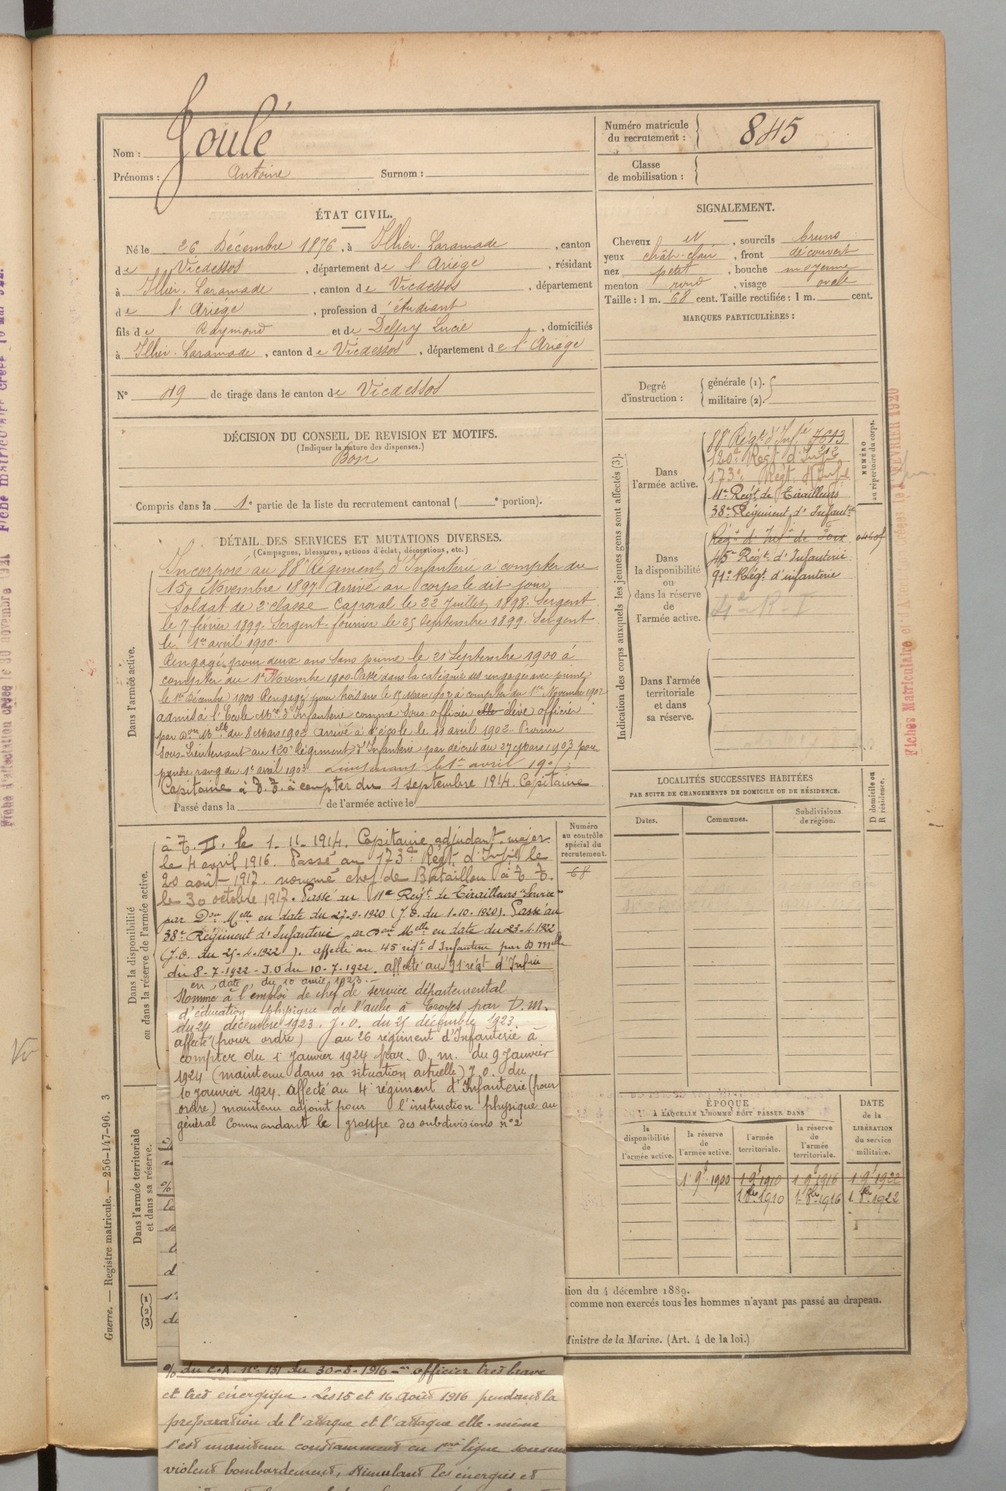 Nom : Goulé
Prénoms : Antoine Surnom :
Numéro matricule du recrutement : 845
Classe de mobilisation :
ÉTAT CIVIL.
Né le 26 Décembre 1876, à Illier-Laramade, canton
de Vicdessos, département de l'Ariège, résidant
à Illier-Laramade, canton de Vicdessos, département
de l'Ariège, profession d'étudiant
fils de Raymond et de Delpy Lucie, domiciliés
à Illier-Laramade, canton de Vicdessos, département de l'Ariège
N° 49 de tirage dans le canton de Vicdessos
SIGNALEMENT.
Cheveux et, sourcils bruns
yeux chât-clair, front découvert
nez petit, bouche moyenne
menton rond, visage ovale
Taille : 1 m. 68 cent. Taille rectifiée : 1 m. cent.
MARQUES PARTICULIÈRES :
Degré d'instruction : générale (1).
militaire (2).
DÉCISION DU CONSEIL DE REVISION ET MOTIFS.
(Indiquer la nature des dispenses.)
Bon
Compris dans la 1e partie de la liste du recrutement cantonal ( e portion).
DÉTAIL DES SERVICES ET MUTATIONS DIVERSES.
(Campagnes, blessures, actions d'éclat, décorations, etc.)
Dans l'armée active.
Incorporé au 88e Régiment d'Infanterie à compter du
15 Novembre 1897. Arrivé au corps le dit jour,
Soldat de 2e classe. Caporal le 22 Juillet 1898. Sergent
le 7 février 1899. Sergent-fourrier le 25 Septembre 1899. Sergent
le 1er avril 1900.
Rengagé pour deux ans sans prime le 21 Septembre 1900 à
compter du 1er Novembre 1900. Passé dans la catégorie des rengagés avec prime
le 1er Décembre 1900. Rengagé pour trois ans le 1902 à compter du 1er Novembre 1902
admis à l'Ecole Mre d'Infanterie comme sous-officier élève officier
par Don Mlle du 8 Mars 1902. Arrivé à l'école le avril 1902. Promu
Sous-Lieutenant au 120e Régiment d'Infanterie par décret du 27 Mars 1903 pour
prendre rang du 1er avril 1903. Lieutenant le 1er avril 190
Capitaine à T.T. à compter du 1 septembre 1914. Capitaine
Passé dans la de l'armée active le
Dans la disponibilité ou dans la réserve de l'armée active.
à T.D. le 1-11-1914. Capitaine adjudant-major
le 4 avril 1916. Passé au 173e Régt d'Infie le
20 août 1917. nommé chef de Bataillon à T.T.
le 30 octobre 1917. Passé au 11e Régt de Tirailleurs
par Don Mlle en date du 27-9-1920 (J.O. du 1-10-1920). Passé au
38e Régiment d'Infanterie par Don Mlle en date du 23-4-1922
(J.O. du 25-4-1922). affecté au 45 régt d'Infanterie par D Mlle
du 8-7-1922 - J.O du 10-7-1922. affecté au 91 régt d'Infie
en date du 10 avril 1923.
Nommé à l'emploi de chef de service départemental
d'éducation physique de l'aube à Troyes par D.M.
du 24 décembre 1923. J.O. du 25 décembre 1923.
affecté (pour ordre) au 26 régiment d'Infanterie à
compter du 1 Janvier 1924 par D.m. du 9 Janvier
1924 (maintenu dans sa situation actuelle) J.O. du
10 janvier 1924. affecté au 4 régiment d'Infanterie (pour
ordre) maintenu adjoint pour l'instruction physique au
général commandant le 1 groupe des subdivisions n°2
Numéro au contrôle spécial du recrutement.
68
Dans l'armée territoriale et dans sa réserve.
(1) (2) (3)
Indication des corps auxquels les jeunes gens sont affectés (3).
NUMÉRO au répertoire du corps.
Dans l'armée active.
88e Régt d'Infie 7613
120e Régt d'Infie
173e Régt d'Infie
11e Régt de Tirailleurs
38e Régiment d'Infanterie
Dans la disponibilité ou dans la réserve de l'armée active.
Régt d'Infie de Foix
45 Régt d'Infanterie
91e Régt d'infanterie
4e R.I
Dans l'armée territoriale et dans sa réserve.
LOCALITÉS SUCCESSIVES HABITÉES
PAR SUITE DE CHANGEMENTS DE DOMICILE OU DE RÉSIDENCE.
Dates. Communes. Subdivisions de région. D domicile ou R résidence.
ÉPOQUE
À LAQUELLE L'HOMME DOIT PASSER DANS
DATE de la LIBÉRATION du service militaire.
la disponibilité de l'armée active. la réserve de l'armée active. l'armée territoriale. la réserve de l'armée territoriale.
1 9e 1900 1 9e 1910 1 9e 1916 1 9e 1922
1 8re 1910 1 8re 1916 1 8re 1922
tion du 4 décembre 1889.
comme non exercés tous les hommes n'ayant pas passé au drapeau.
Ministre de la Marine. (Art. 4 de la loi.)
Guerre. — Registre matricule. — 256-147-96. 3
% du C.A. n° 151 du 30-8-1916 - officier très brave
et très énergique. Les 15 et 16 Août 1916 pendant la
préparation de l'attaque et l'attaque elle-même
s'est maintenu constamment en 1ère ligne sous un
violent bombardement, stimulant les énergies et